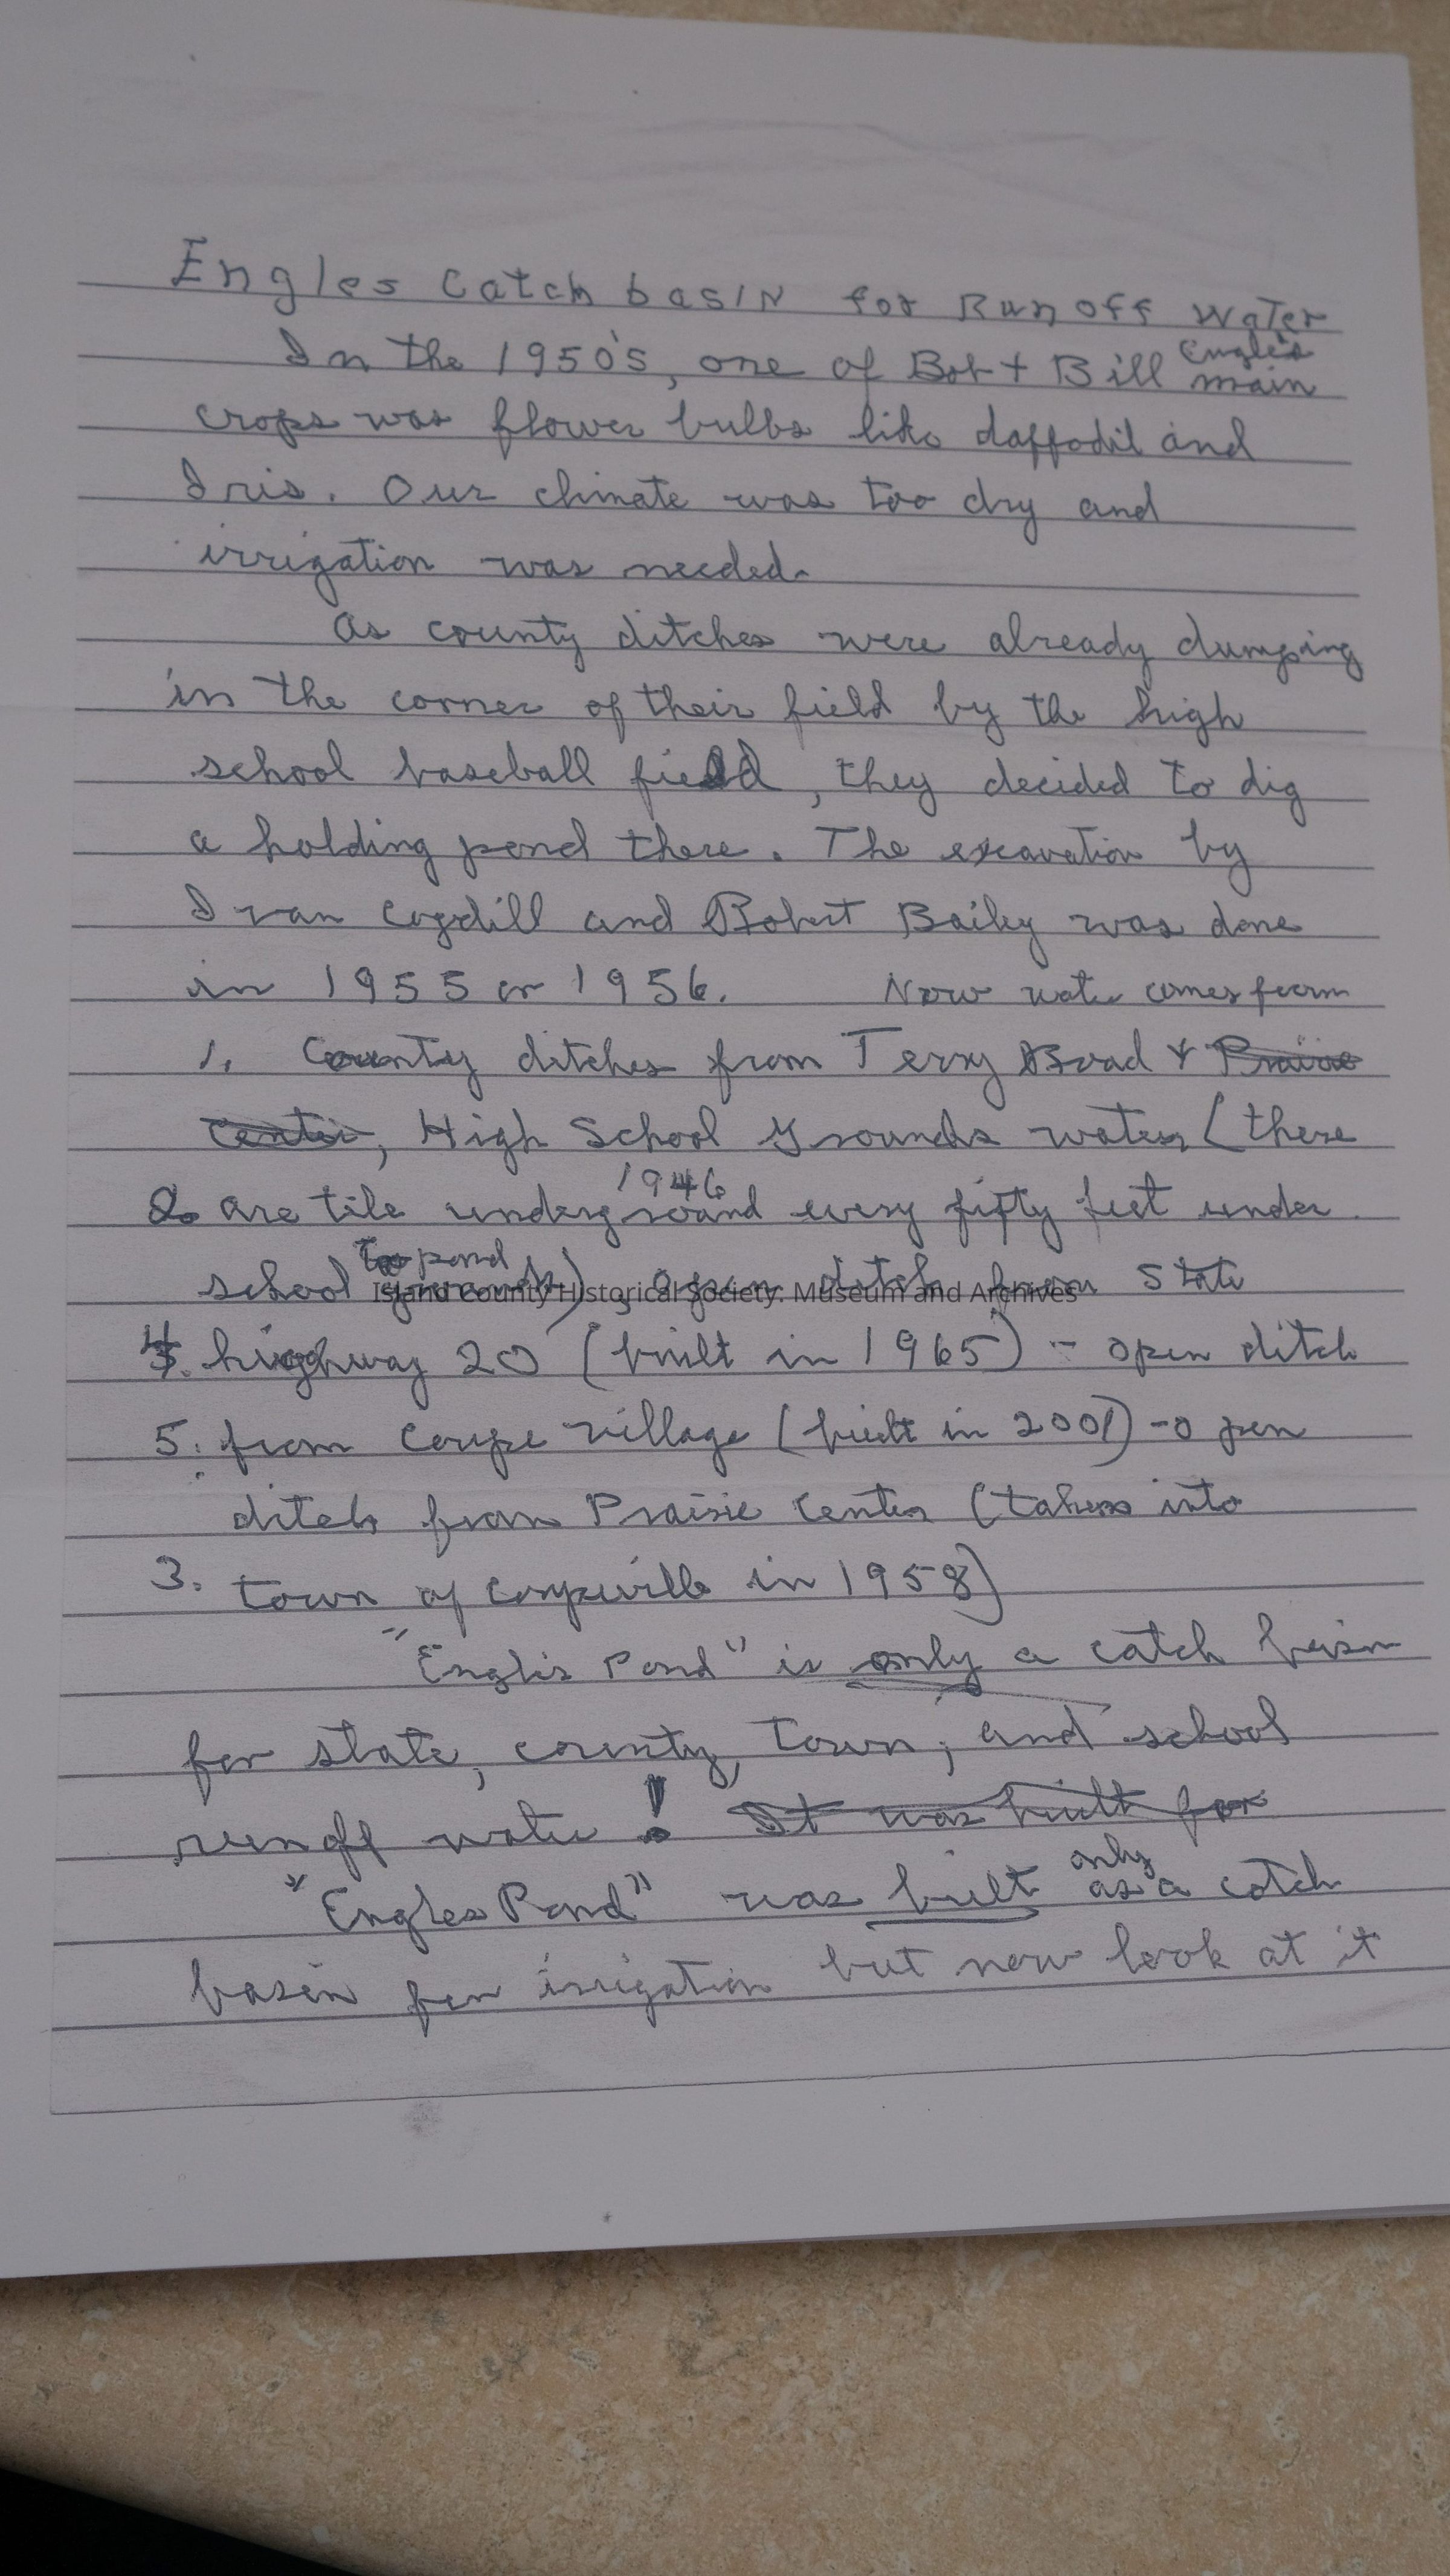 Engles Catch basin for Run off Water
In the 1950's, one of Bob + Bill Engle's main
crops was flower bulbs like daffodil and
Iris. Our climate was too dry and
irrigation was needed.
As county ditches were already dumping
in the corner of their field by the high
school baseball field, they decided to dig
a holding pond there. The excavation by
Ivan Cogdill and Robert Bailey was done
in 1955 or 1956. Now water comes from
1. County ditches from Terry Road & Prairie
Center, High School Grounds water, (there
1946
2. are tile underground every fifty feet under
to pond
school grounds), open ditch from State
Island County Historical Society: Museum and Archives
4. highway 20 (built in 1965) - open ditch
5. from Coupe village (built in 2001) - open
ditch from Prairie Center (taken into
3. town of Coupeville in 1958)
"Engle's Pond" is only a catch basin
for state, county, town, and school
runoff water! It was built for
only
"Engles Pond" was built as a catch
basin for irrigation but now look at it